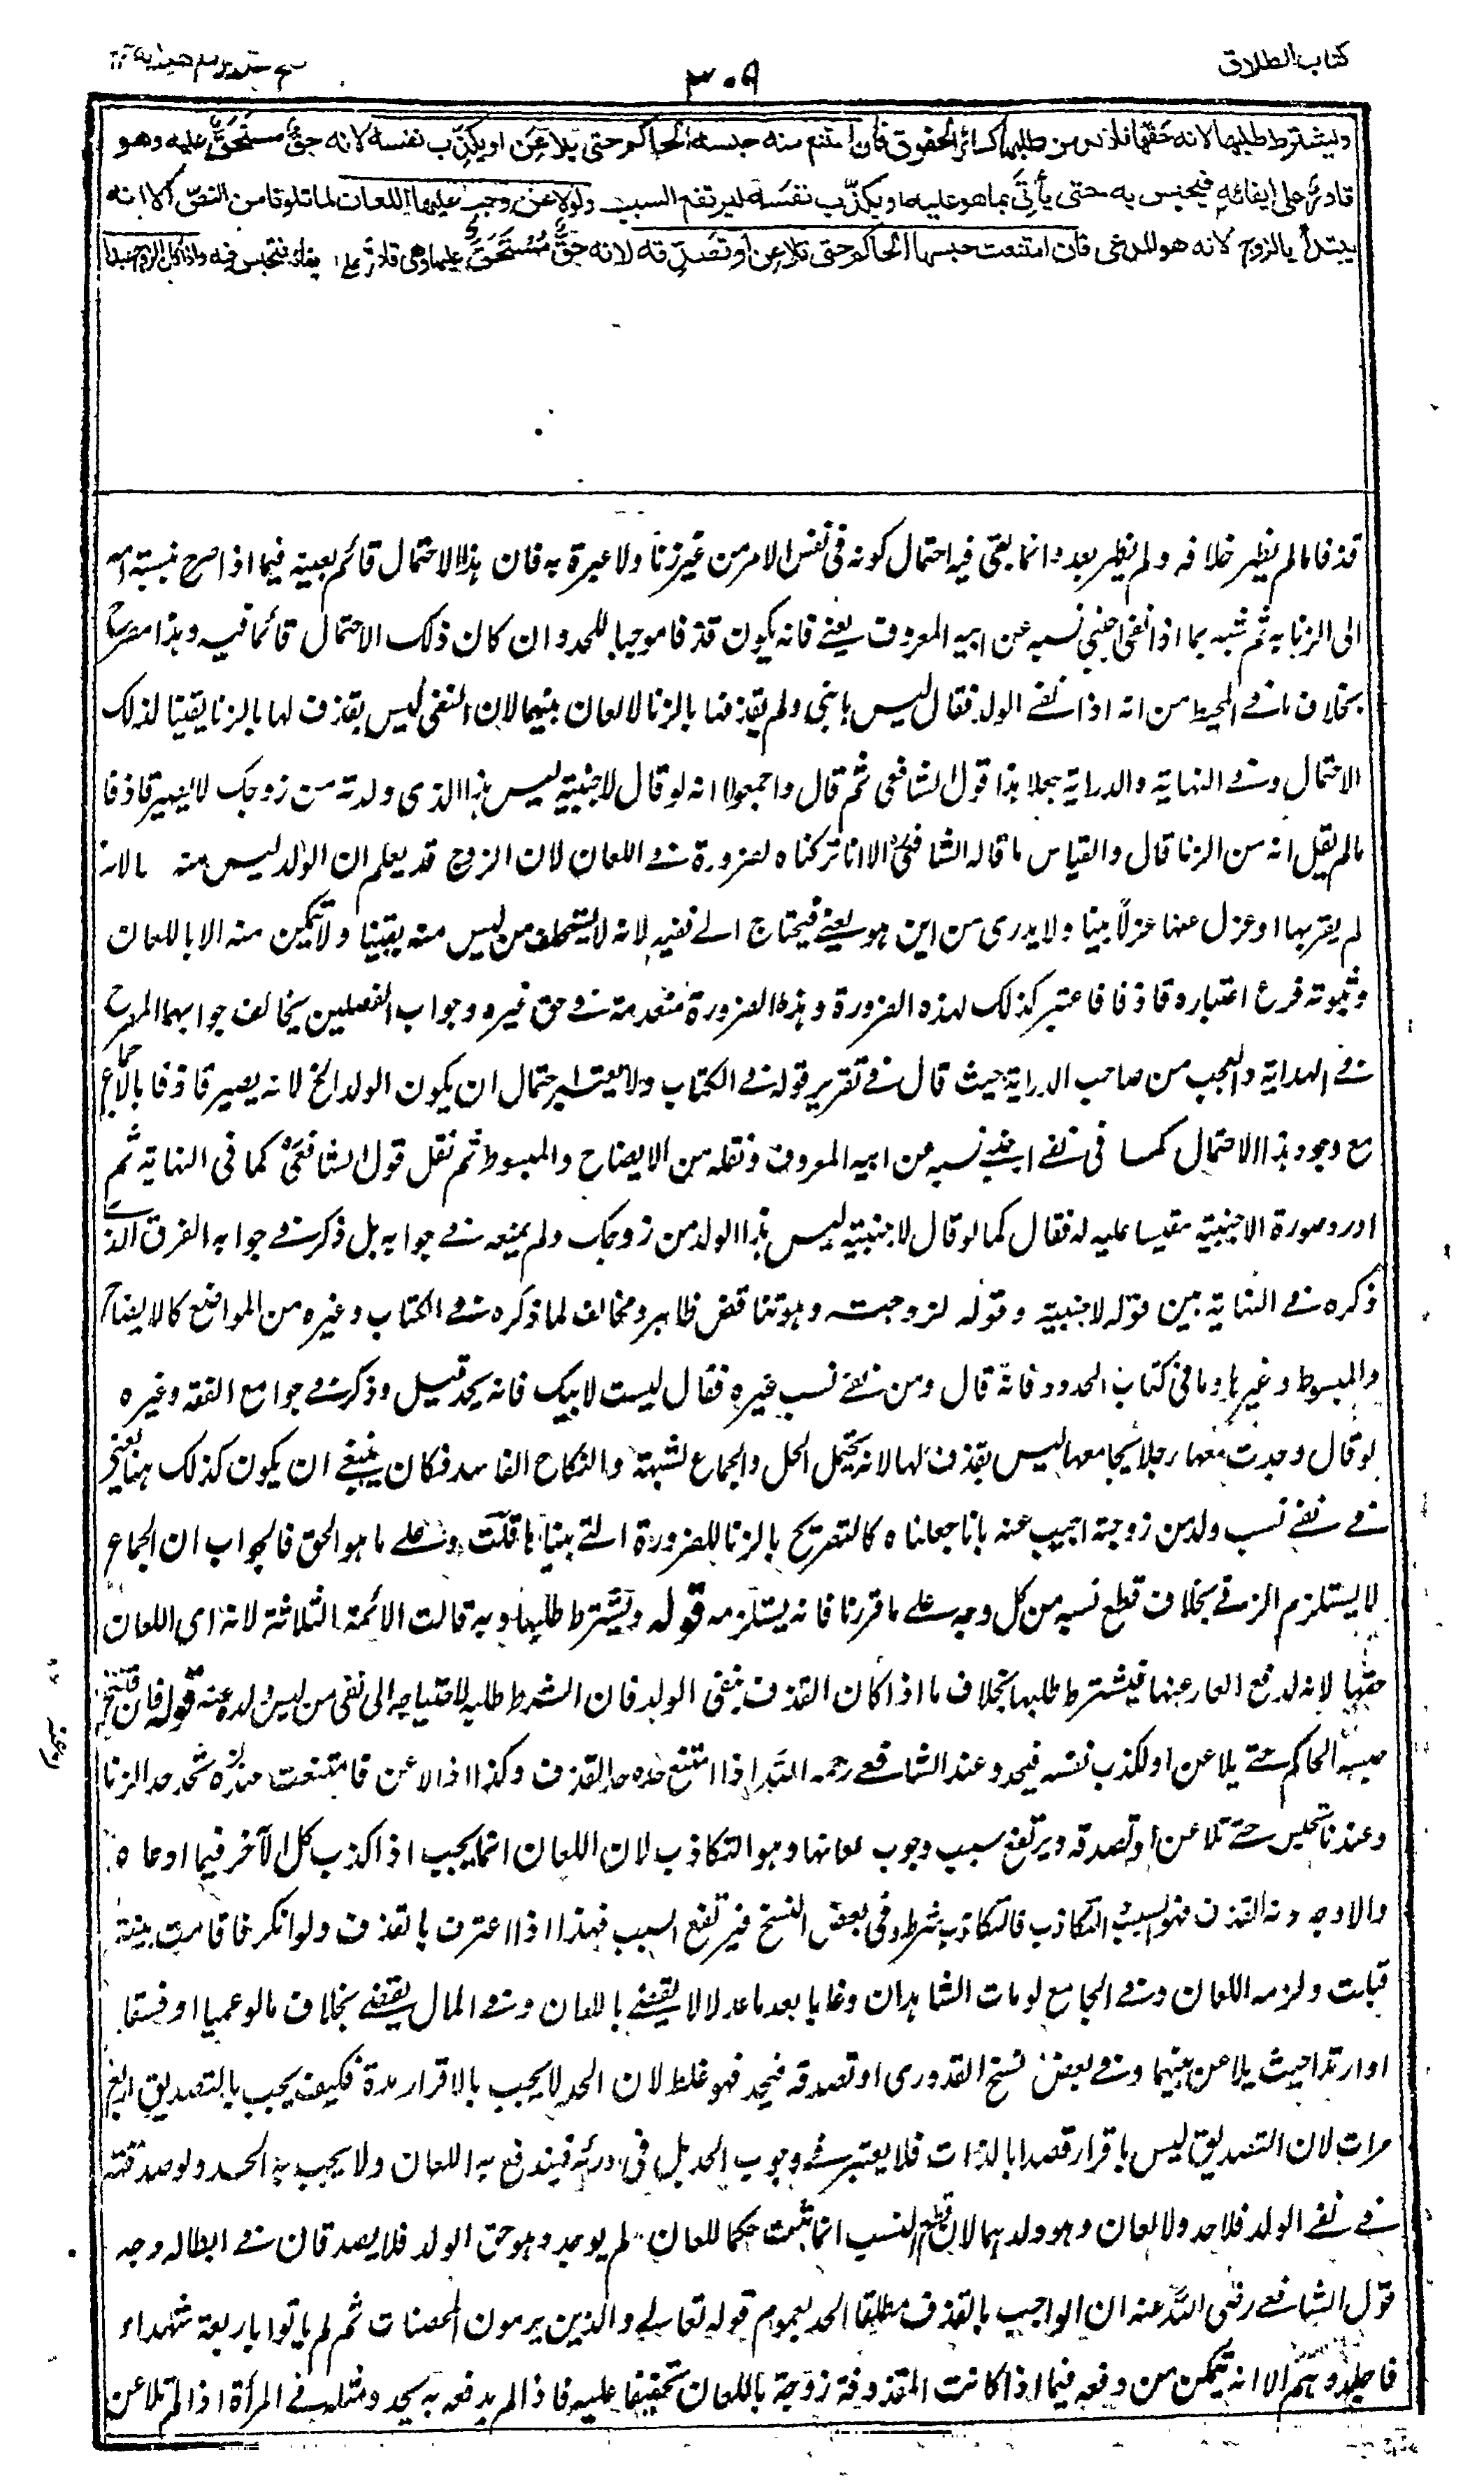 كتاب الطلاق
٣٠٩
ويشترط طلبها لانه حقها فلا بد من طلبها كسائر الحقوق فان امتنع منه حبسه الحاكم حتى يلاعن او يكذب نفسه لانه حق مستحق عليه وهو
قادر على ايفائه فيحبس به حتى يأتي بما هو عليه او يكذب نفسه ليرتفع السبب ولو لاعن وجب عليها اللعان لما تلونا من النص الا انه
يبتدأ بالزوج لانه هو المدعي فان امتنعت حبسها الحاكم حتى تلاعن او تصدقه لانه حق مستحق عليها وهي قادرة على ايفائه فتحبس فيه واذا كان الزوج عبدا
قذفا ما لم يظهر خلافه ولم يظهر بعد وانما بقي فيه احتمال كونه في نفس الامر من غير زنا ولا عبرة به فان هذا الاحتمال قائم بعينه فيما اذا صرح بنسبة امه
الى الزنا به ثم شبه بما اذا نفى اجنبي نسبه عن ابيه المعروف يعني فانه يكون قذفا موجبا للحد وان كان ذلك الاحتمال قائما فيه وهذا مصرح
بخلاف ما في المحيط من انه اذا نفى الولد فقال ليس بابني ولم يقذفها بالزنا لا لعان بينهما لان النفي ليس بقذف لها بالزنا يقينا لذلك
الاحتمال وفي النهاية والدراية جعلا هذا قول الشافعي ثم قال واجمعوا انه لو قال لاجنبية ليس هذا الذي ولدته من زوجك لا يصير قاذفا
ما لم يقل انه من الزنا قال والقياس ما قاله الشافعي الا انا تركناه لضرورة في اللعان لان الزوج قد يعلم ان الولد ليس منه بانه
لم يقربها او عزل عنها عزلا بينا ولا يدري من اين هو يعني فيحتاج الى نفيه لانه لا يستلحق من ليس منه يقينا ولا يتمكن منه الا باللعان
وثبوته فرع اعتباره قاذفا فاعتبر كذلك لهذه الضرورة وهذه الضرورة منعدمة في حق غيره وجواب الفصلين يخالف جوابهما المصرح
في الهداية والعجب من صاحب الدراية حيث قال في تقرير قوله في الكتاب ولا يعتبر احتمال ان يكون الولد الخ لانه يصير قاذفا بالاجماع
مع وجود هذا الاحتمال كما في نفي اجنبي نسبه عن ابيه المعروف ونقله من الايضاح والمبسوط ثم نقل قول الشافعي كما في النهاية ثم
اورد صورة الاجنبية مقيسا عليه له فقال كما لو قال لاجنبية ليس هذا الولد من زوجك ولم يمنعه في جوابه بل ذكر في جوابه الفرق الذي
ذكره في النهاية بين قوله لاجنبية وقوله لزوجته وهو تناقض ظاهر ومخالف لما ذكره في الكتاب وغيره من المواضع كالايضاح
والمبسوط وغيرها وما في كتاب الحدود فانه قال ومن نفى نسب غيره فقال لست لابيك فانه يحد قيل وذكر في جوامع الفقه وغيره
لو قال وجدت معها رجلا يجامعها ليس بقذف لها لانه يحتمل الحل والجماع لشبهة والنكاح الفاسد فكان ينبغي ان يكون كذلك هنا يعني
في نفي نسب ولد من زوجته اجيب عنه بانا جعلناه كالتصريح بالزنا للضرورة التي بيناها قلت وعلى ما هو الحق فالجواب ان الجماع
لا يستلزم الزنى بخلاف قطع نسبه من كل وجه على ما قررنا فانه يستلزمه قوله ويشترط طلبها وبه قالت الائمة الثلاثة لانه اى اللعان
حقها لانه لدفع العار عنها فيشترط طلبها بخلاف ما اذا كان القذف بنفي الولد فان الشرط طلبه لاحتياجه الى نفي من ليس ولده عنه قوله فان امتنع
حبسه الحاكم حتى يلاعن او يكذب نفسه فيحد وعند الشافعي رحمه الله اذا امتنع حده حد القذف وكذا اذا لاعن فامتنعت عنده تحد حد الزنا
وعندنا تحبس حتى تلاعن او تصدقه ويرتفع سبب وجوب لعانها وهو التكاذب لان اللعان انما يجب اذا اكذب كل الآخر فيما ادعاه
والاوجه ‌انه القذف فهو السبب التكاذب فالتكاذب شرط وفي بعض النسخ فيرتفع السبب فهذا اذا اعترف بالقذف ولو انكر فاقامت بينة
قبلت ولزمه اللعان وفي الجامع لو مات الشاهدان وغابا بعد ما عدلا لا يقضي باللعان وفي المال يقضي بخلاف ما لو عميا او فسقا
او ارتدا حيث يلاعن بينهما وفي بعض نسخ القدوري او تصدقه فتحد فهو غلط لان الحد لا يجب بالاقرار مرة فكيف يجب بالتصديق اربع
مرات لان التصديق ليس باقرار قصدا بالذات فلا يعتبر في وجوب الحد بل في درئه فيندفع به اللعان ولا يجب به الحد ولو صدقته
في نفي الولد فلا حد ولا لعان وهو ولدهما لان قطع النسب انما يثبت حكما للعان ولم يوجد وهو حق الولد فلا يصدقان في ابطاله وجه
قول الشافعي رضي الله عنه ان الواجب بالقذف مطلقا الحد بعموم قوله تعالى والذين يرمون المحصنات ثم لم ياتوا باربعة شهداء
فاجلدوهم الا انه يتمكن من دفعه فيما اذا كانت المقذوفة زوجة باللعان تخفيفا عليه فاذا لم يدفعه به يحد ومثله في المرأة اذا لم تلاعن